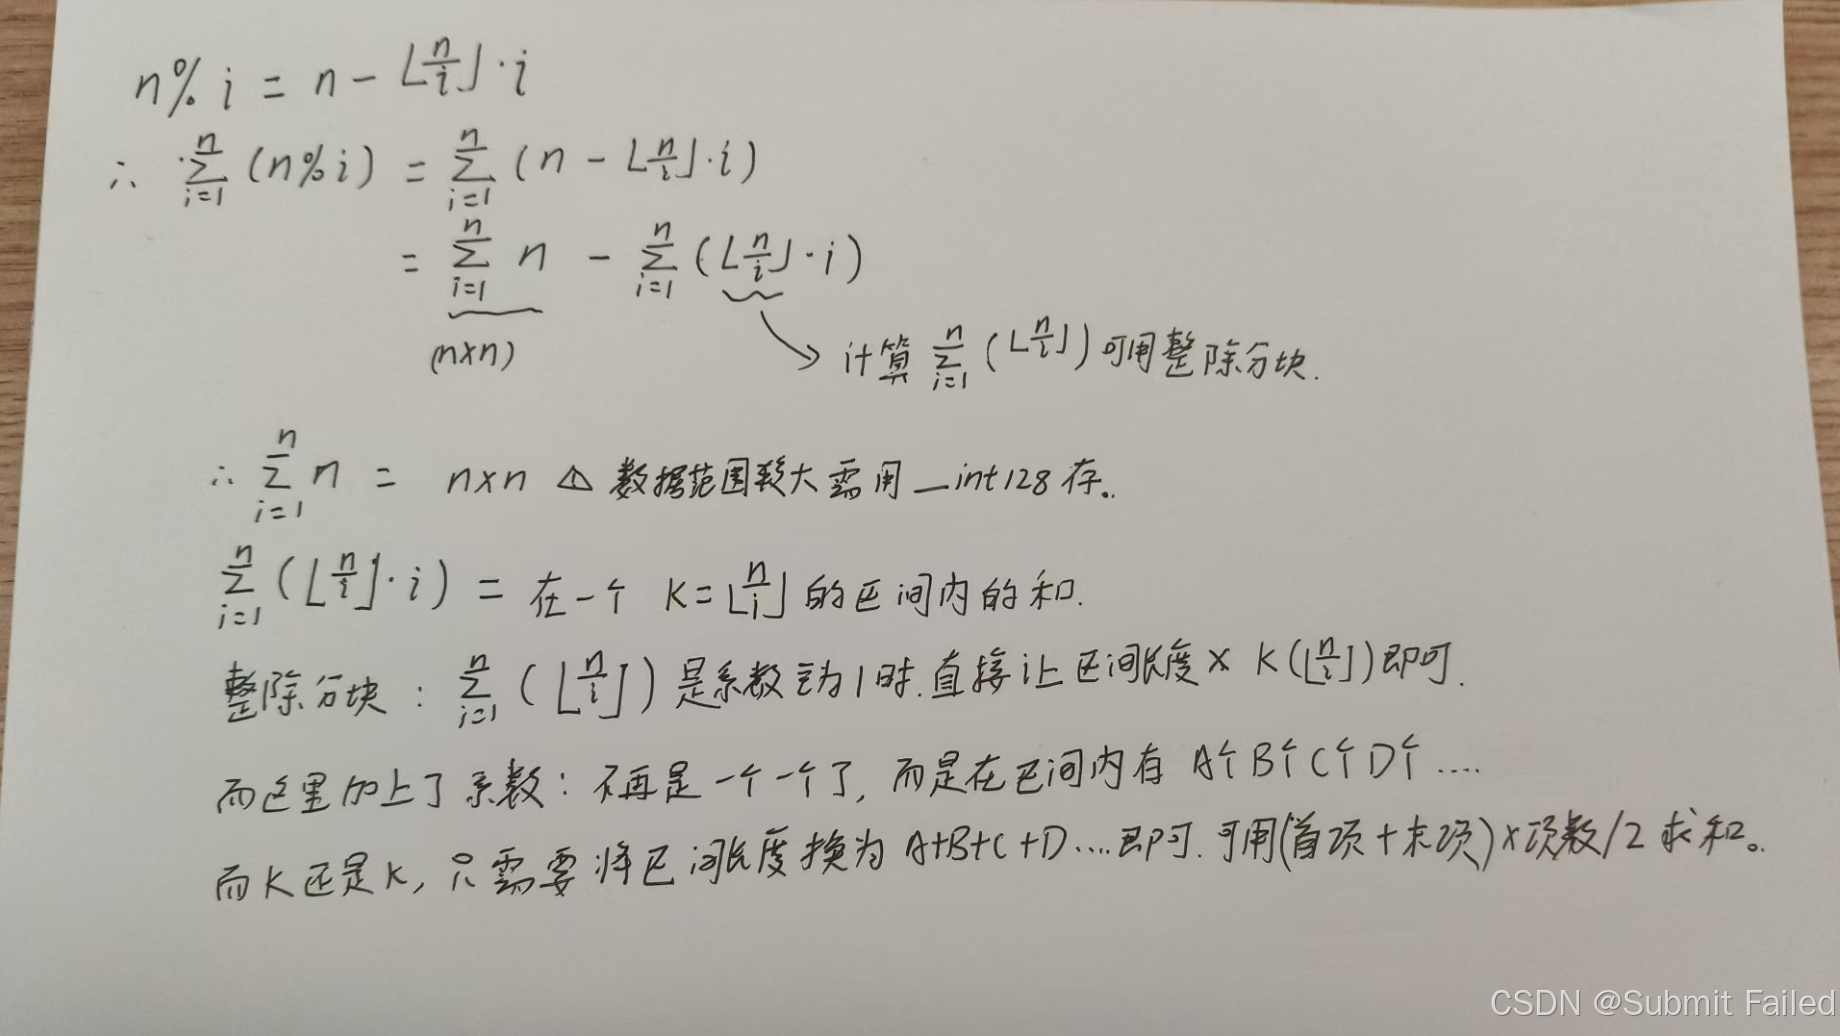 n%i = n - ⌊n/i⌋·i
∴ ∑_{i=1}^{n} (n%i) = ∑_{i=1}^{n} (n - ⌊n/i⌋·i)
= ∑_{i=1}^{n} n - ∑_{i=1}^{n} (⌊n/i⌋·i)
(n×n)
计算 ∑_{i=1}^{n} (⌊n/i⌋) 可用整除分块.
∴ ∑_{i=1}^{n} n = n×n ⚠ 数据范围较大需用__int128存。
∑_{i=1}^{n} (⌊n/i⌋·i) = 在一个 K=⌊n/i⌋ 的区间内的和.
整除分块: ∑_{i=1}^{n} (⌊n/i⌋) 是系数为1时.直接让区间长度 × K(⌊n/i⌋)即可.
而这里加上了系数: 不再是一个一个了, 而是在区间内有 A个B个C个D个....
而K还是K, 只需要将区间长度换为 A+B+C+D....即可.可用(首项+末项)×项数/2求和。
CSDN @Submit Failed